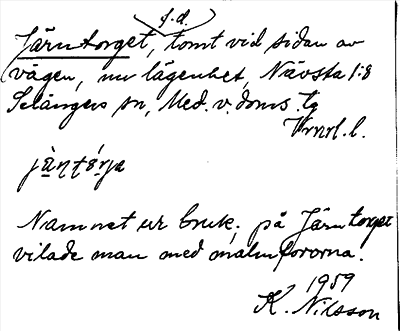 f.d.
Järntorget, tomt vid sidan av
vägen, nu lägenhet, Nävsta 1:8
Selångers sn, Med. v. doms. tg
Vrnl. l.
Namnet ur bruk; på Järntorget
vilade man med malmfororna.
1959
K. Nilsson